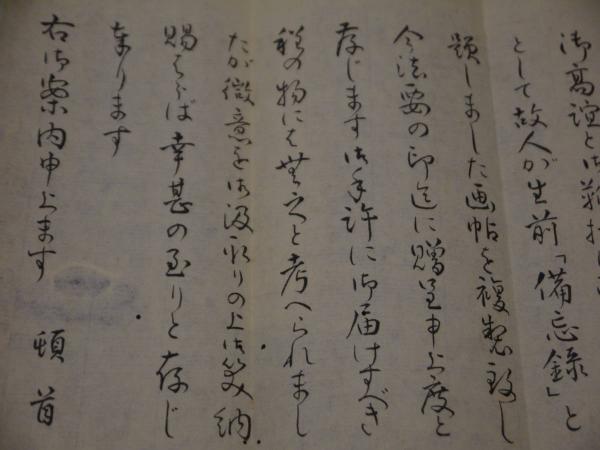 御高誼と御
として故人が生前「備忘録」と
題しました画帖を複製致し
今法要の印迄に贈呈申上度と
存じます御手許に御届けすべき
程の物にも無之と考へられまし
たが微意を御汲取りの上御笑納
賜らば幸甚の至りと存じ
奉ります
右御案内申上ます 頓首